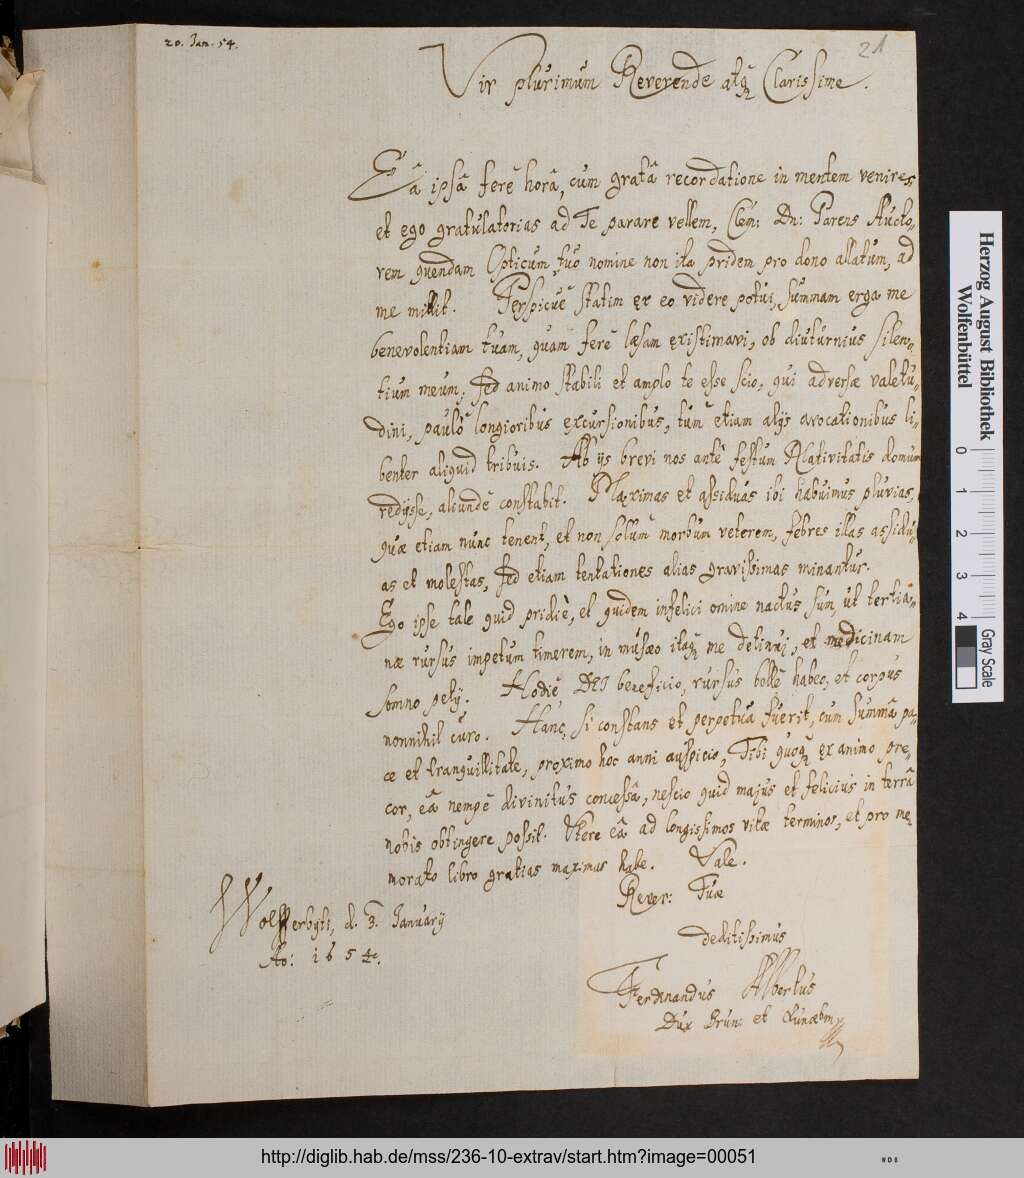 20. Jan. 54.
21
Vir plurimum Reverende atq; Clarissime.
Eâ ipsâ ferè horâ, cum gratâ recordatione in mentem venires,
et ego gratulatorias ad Te parare vellem, Clem: Dn: Parens Aucto-
rem quendam Opticum, tuo nomine non ita pridem pro dono allatum, ad
me misit. Perspicuè statim ex eo videre potui, summam erga me
benevolentiam tuam, quam ferè læsam existimavi, ob diuturnius silen-
tium meum, sed animo stabili et amplo te esse scio, qui adversæ valetu-
dini, paulò longioribus excursionibus, tum etiam alijs avocationibus li-
benter aliquid tribuis. Ab ijs brevi nos antè festum Nativitatis domum
redijsse, aliundè constabit. Maximas et assiduas ibi habuimus pluvias,
quæ etiam nunc tenent, et non solum morbum veterem, febres illas assidu-
as et molestas, sed etiam tentationes alias gravissimas minantur.
Ego ipse tale quid pridiè, et quidem infelici omine nactus sum, ut tertia-
næ rursus impetum timerem, in musæo itaq; me detinui, et medicinam
somno petij. Hodiè DEI beneficio, rursus bellè habeo, et corpus
nonnihil curo. Hanc, si constans et perpetua fuerit, cum summâ pa-
ce et tranquillitate, proximo hoc anni auspicio, Tibi quoq; ex animo pre-
cor, eâ nempè divinitus concessâ, nescio quid majus et felicius in terrâ
nobis obtingere possit. Utere eâ ad longissimos vitæ terminos, et pro me-
morato libro gratias maximas habe. Vale.
Rever: Tuæ
Wolfferbyti, d. 3. Januarij
Ao: 1654.
deditissimus
Ferdinandus Albertus
Dux Brunc et Lunæb
Herzog August Bibliothek
Wolfenbüttel
0 1 2 3 4
Gray Scale
http://diglib.hab.de/mss/236-10-extrav/start.htm?image=00051